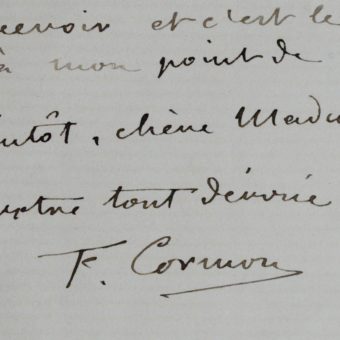 cevoir et c'est le
à mon point de
entôt, chère Mada
votre tout dévoué
F. Cormon